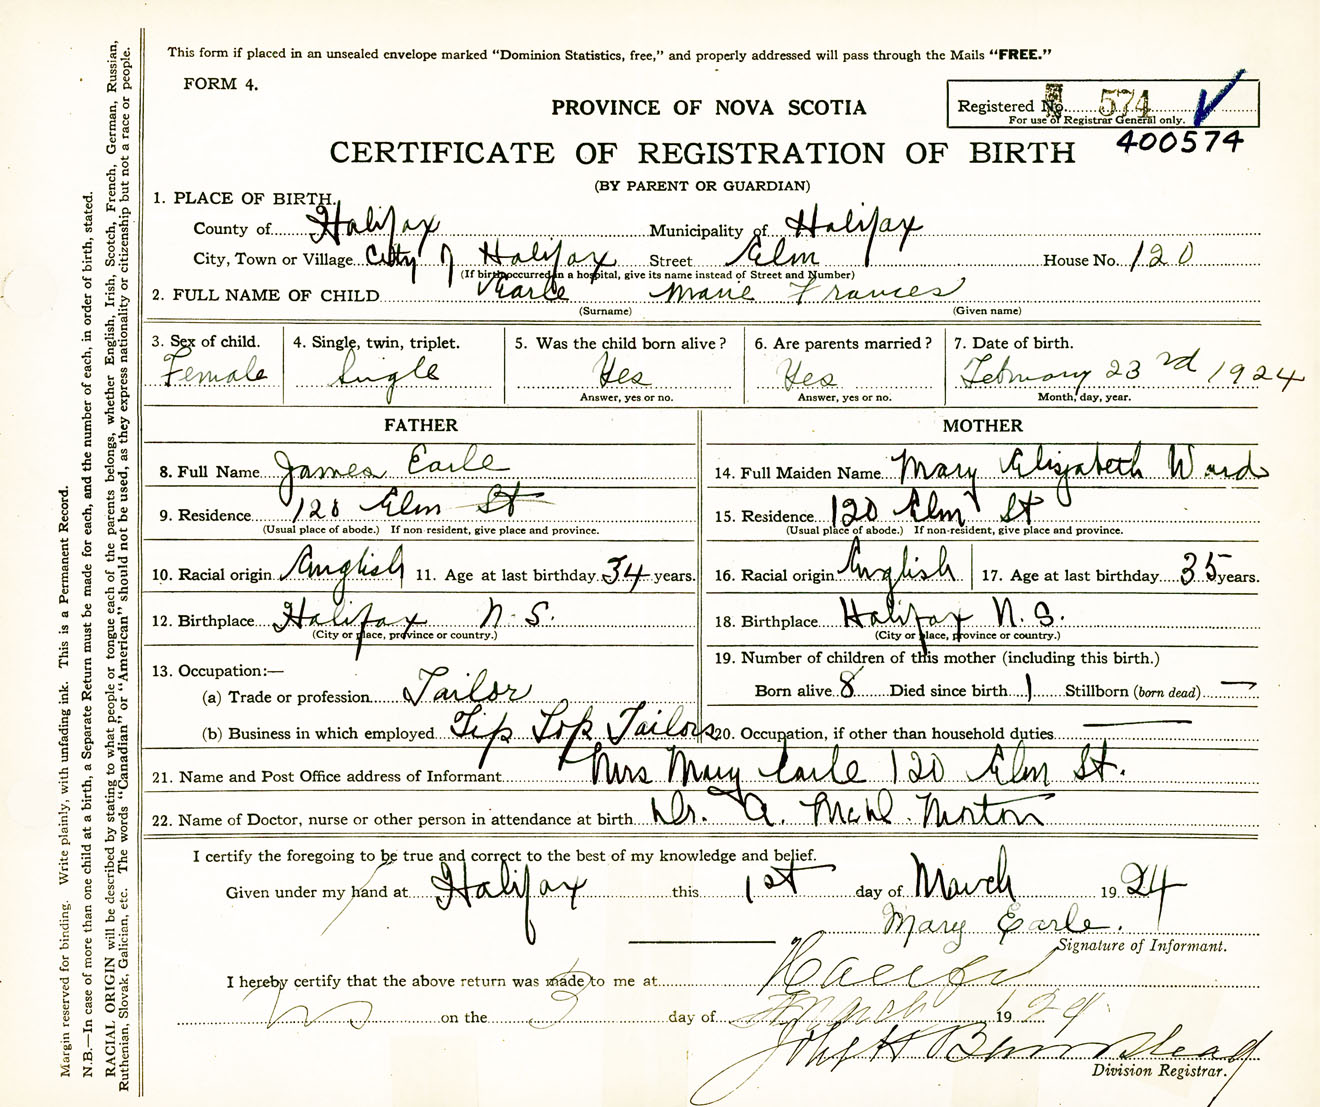 This form if placed in an unsealed envelope marked "Dominion Statistics, free," and properly addressed will pass through the Mails "FREE."
FORM 4.
Registered No. 574
For use of Registrar General only.
400574
PROVINCE OF NOVA SCOTIA
CERTIFICATE OF REGISTRATION OF BIRTH
(BY PARENT OR GUARDIAN)
1. PLACE OF BIRTH.
County of Halifax Municipality of Halifax
City, Town or Village City of Halifax Street Elm House No. 120
(If birth occurred in a hospital, give its name instead of Street and Number)
2. FULL NAME OF CHILD Earle Marie Frances
(Surname) (Given name)
3. Sex of child. 4. Single, twin, triplet. 5. Was the child born alive? 6. Are parents married? 7. Date of birth.
Female Single Yes Yes February 23rd 1924
Answer, yes or no. Answer, yes or no. Month, day, year.
FATHER MOTHER
8. Full Name James Earle 14. Full Maiden Name Mary Elizabeth Ward
9. Residence 120 Elm St 15. Residence 120 Elm St
(Usual place of abode.) If non resident, give place and province. (Usual place of abode.) If non-resident, give place and province.
10. Racial origin English 11. Age at last birthday 34 years. 16. Racial origin English 17. Age at last birthday 35 years.
12. Birthplace Halifax N.S. 18. Birthplace Halifax N.S.
(City or place, province or country.) (City or place, province or country.)
13. Occupation:— 19. Number of children of this mother (including this birth.)
(a) Trade or profession Tailor Born alive 8 Died since birth 1 Stillborn (born dead) —
(b) Business in which employed Tip Top Tailors 20. Occupation, if other than household duties —
21. Name and Post Office address of Informant Mrs Mary Earle 120 Elm St.
22. Name of Doctor, nurse or other person in attendance at birth Dr. A. McD. Morton
I certify the foregoing to be true and correct to the best of my knowledge and belief.
Given under my hand at Halifax this 1st day of March 1924
Mary Earle.
Signature of Informant.
I hereby certify that the above return was made to me at Halifax
N S on the 3 day of March 1924
John H Barnstead
Division Registrar.
Margin reserved for binding. Write plainly, with unfading ink. This is a Permanent Record.
N.B.—In case of more than one child at a birth, a Separate Return must be made for each, and the number of each, in order of birth, stated.
RACIAL ORIGIN will be described by stating to what people or tongue each of the parents belongs, whether English, Irish, Scotch, French, German, Russian,
Ruthenian, Slovak, Galician, etc. The words "Canadian" or "American" should not be used, as they express nationality or citizenship but not a race or people.